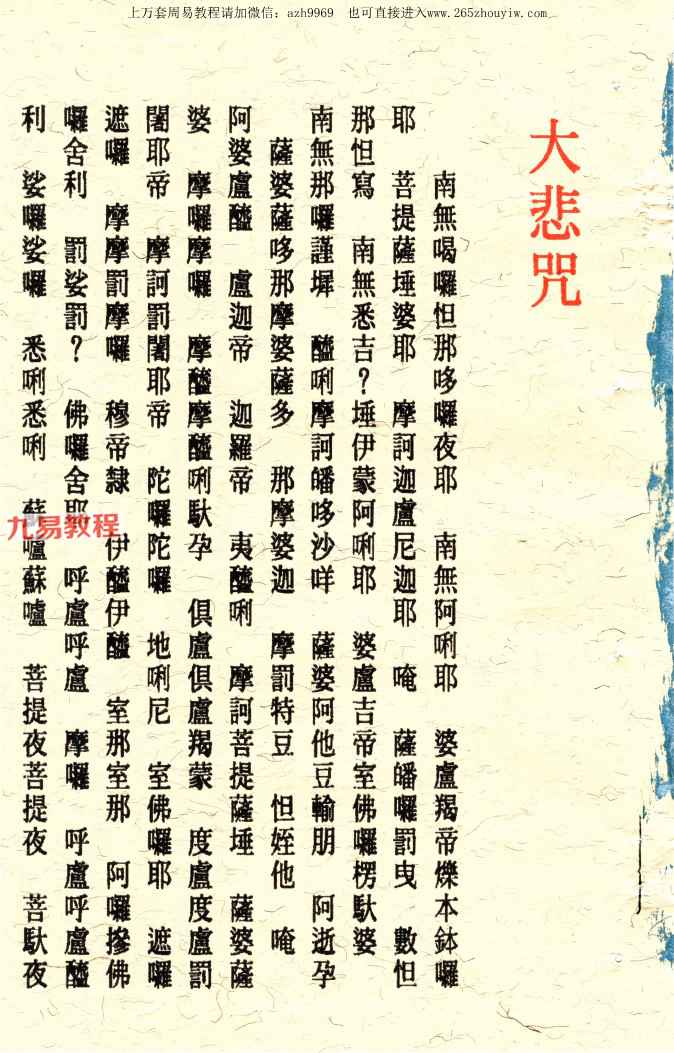 上万套周易教程请加微信：azh9969　也可直接进入www.265zhouyiw.com
大悲咒
南無喝囉怛那哆囉夜耶　南無阿唎耶　婆盧羯帝爍本鉢囉
耶　菩提薩埵婆耶　摩訶迦盧尼迦耶　唵　薩皤囉罰曳　數怛
那怛寫　南無悉吉？埵伊蒙阿唎耶　婆盧吉帝室佛囉楞馱婆
南無那囉謹墀　醯唎摩訶皤哆沙咩　薩婆阿他豆輸朋　阿逝孕
薩婆薩哆那摩婆薩多　那摩婆迦　摩罰特豆　怛姪他　唵
阿婆盧醯　盧迦帝　迦羅帝　夷醯唎　摩訶菩提薩埵　薩婆薩
婆　摩囉摩囉　摩醯摩醯唎馱孕　俱盧俱盧羯蒙　度盧度盧罰
闍耶帝　摩訶罰闍耶帝　陀囉陀囉　地唎尼　室佛囉耶　遮囉
遮囉　摩摩罰摩囉　穆帝隸　伊醯伊醯　室那室那　阿囉摻佛
囉舍利　罰娑罰？　佛囉舍耶　呼盧呼盧　摩囉　呼盧呼盧醯
利　娑囉娑囉　悉唎悉唎　蘇嚧蘇嚧　菩提夜菩提夜　菩馱夜
九易教程